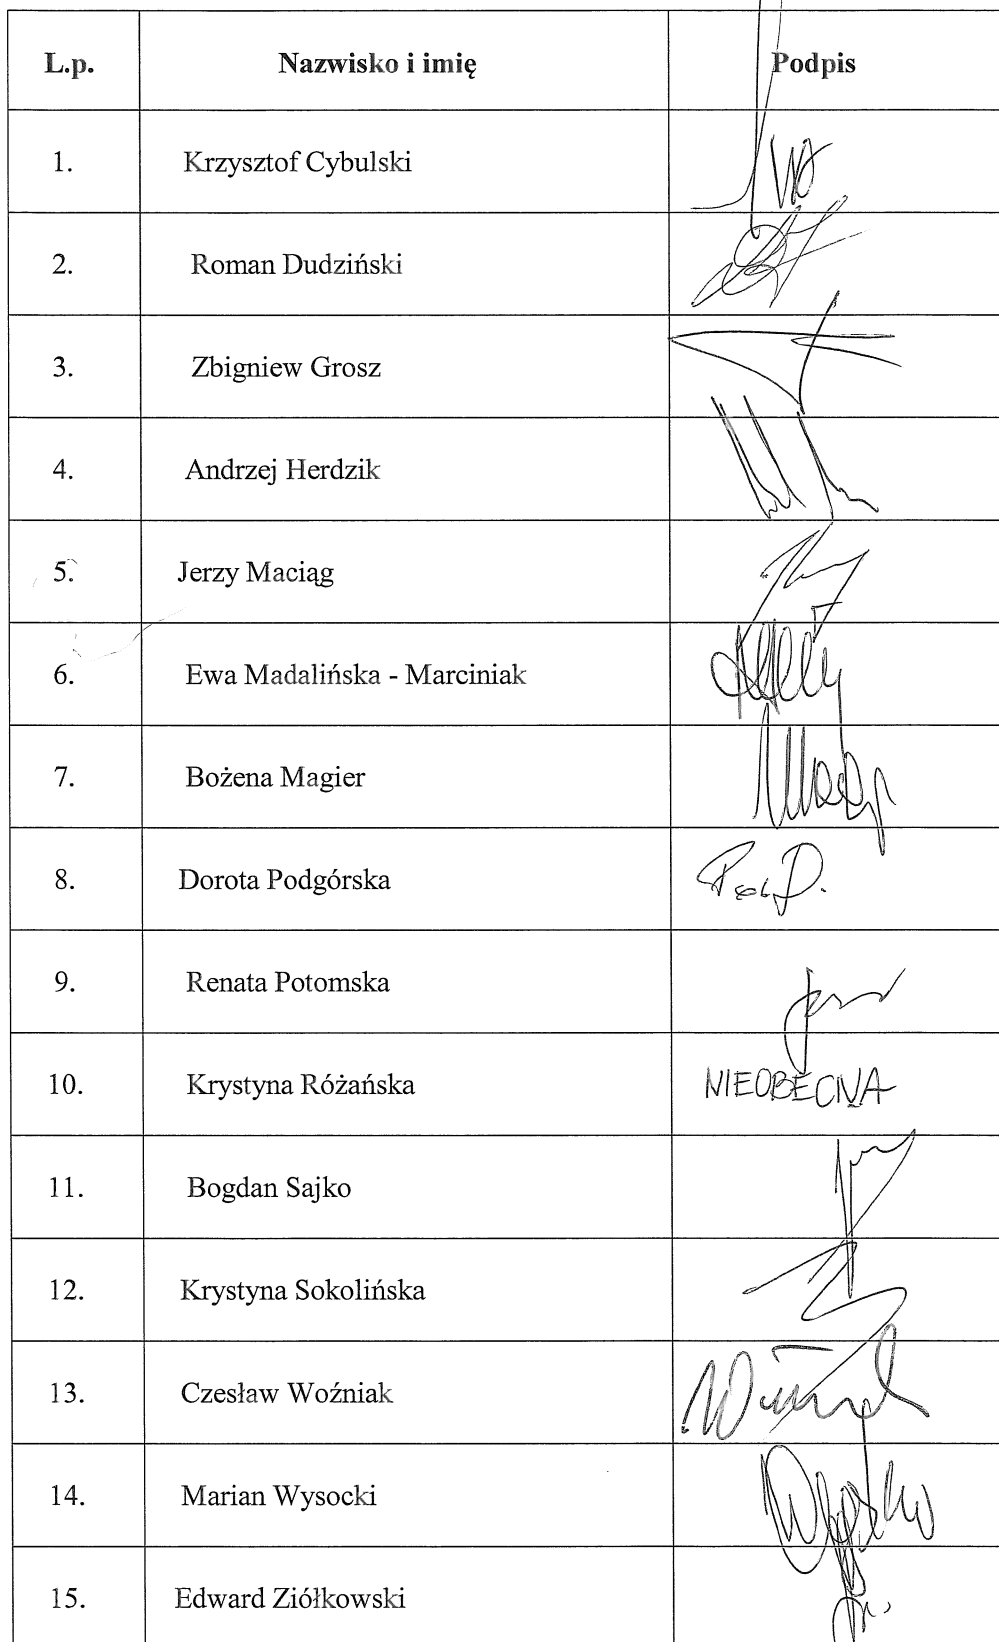 L.p. Nazwisko i imię Podpis
1. Krzysztof Cybulski
2. Roman Dudziński
3. Zbigniew Grosz
4. Andrzej Herdzik
5. Jerzy Maciąg
6. Ewa Madalińska - Marciniak
7. Bożena Magier
8. Dorota Podgórska
9. Renata Potomska
10. Krystyna Różańska NIEOBECNA
11. Bogdan Sajko
12. Krystyna Sokolińska
13. Czesław Woźniak
14. Marian Wysocki
15. Edward Ziółkowski